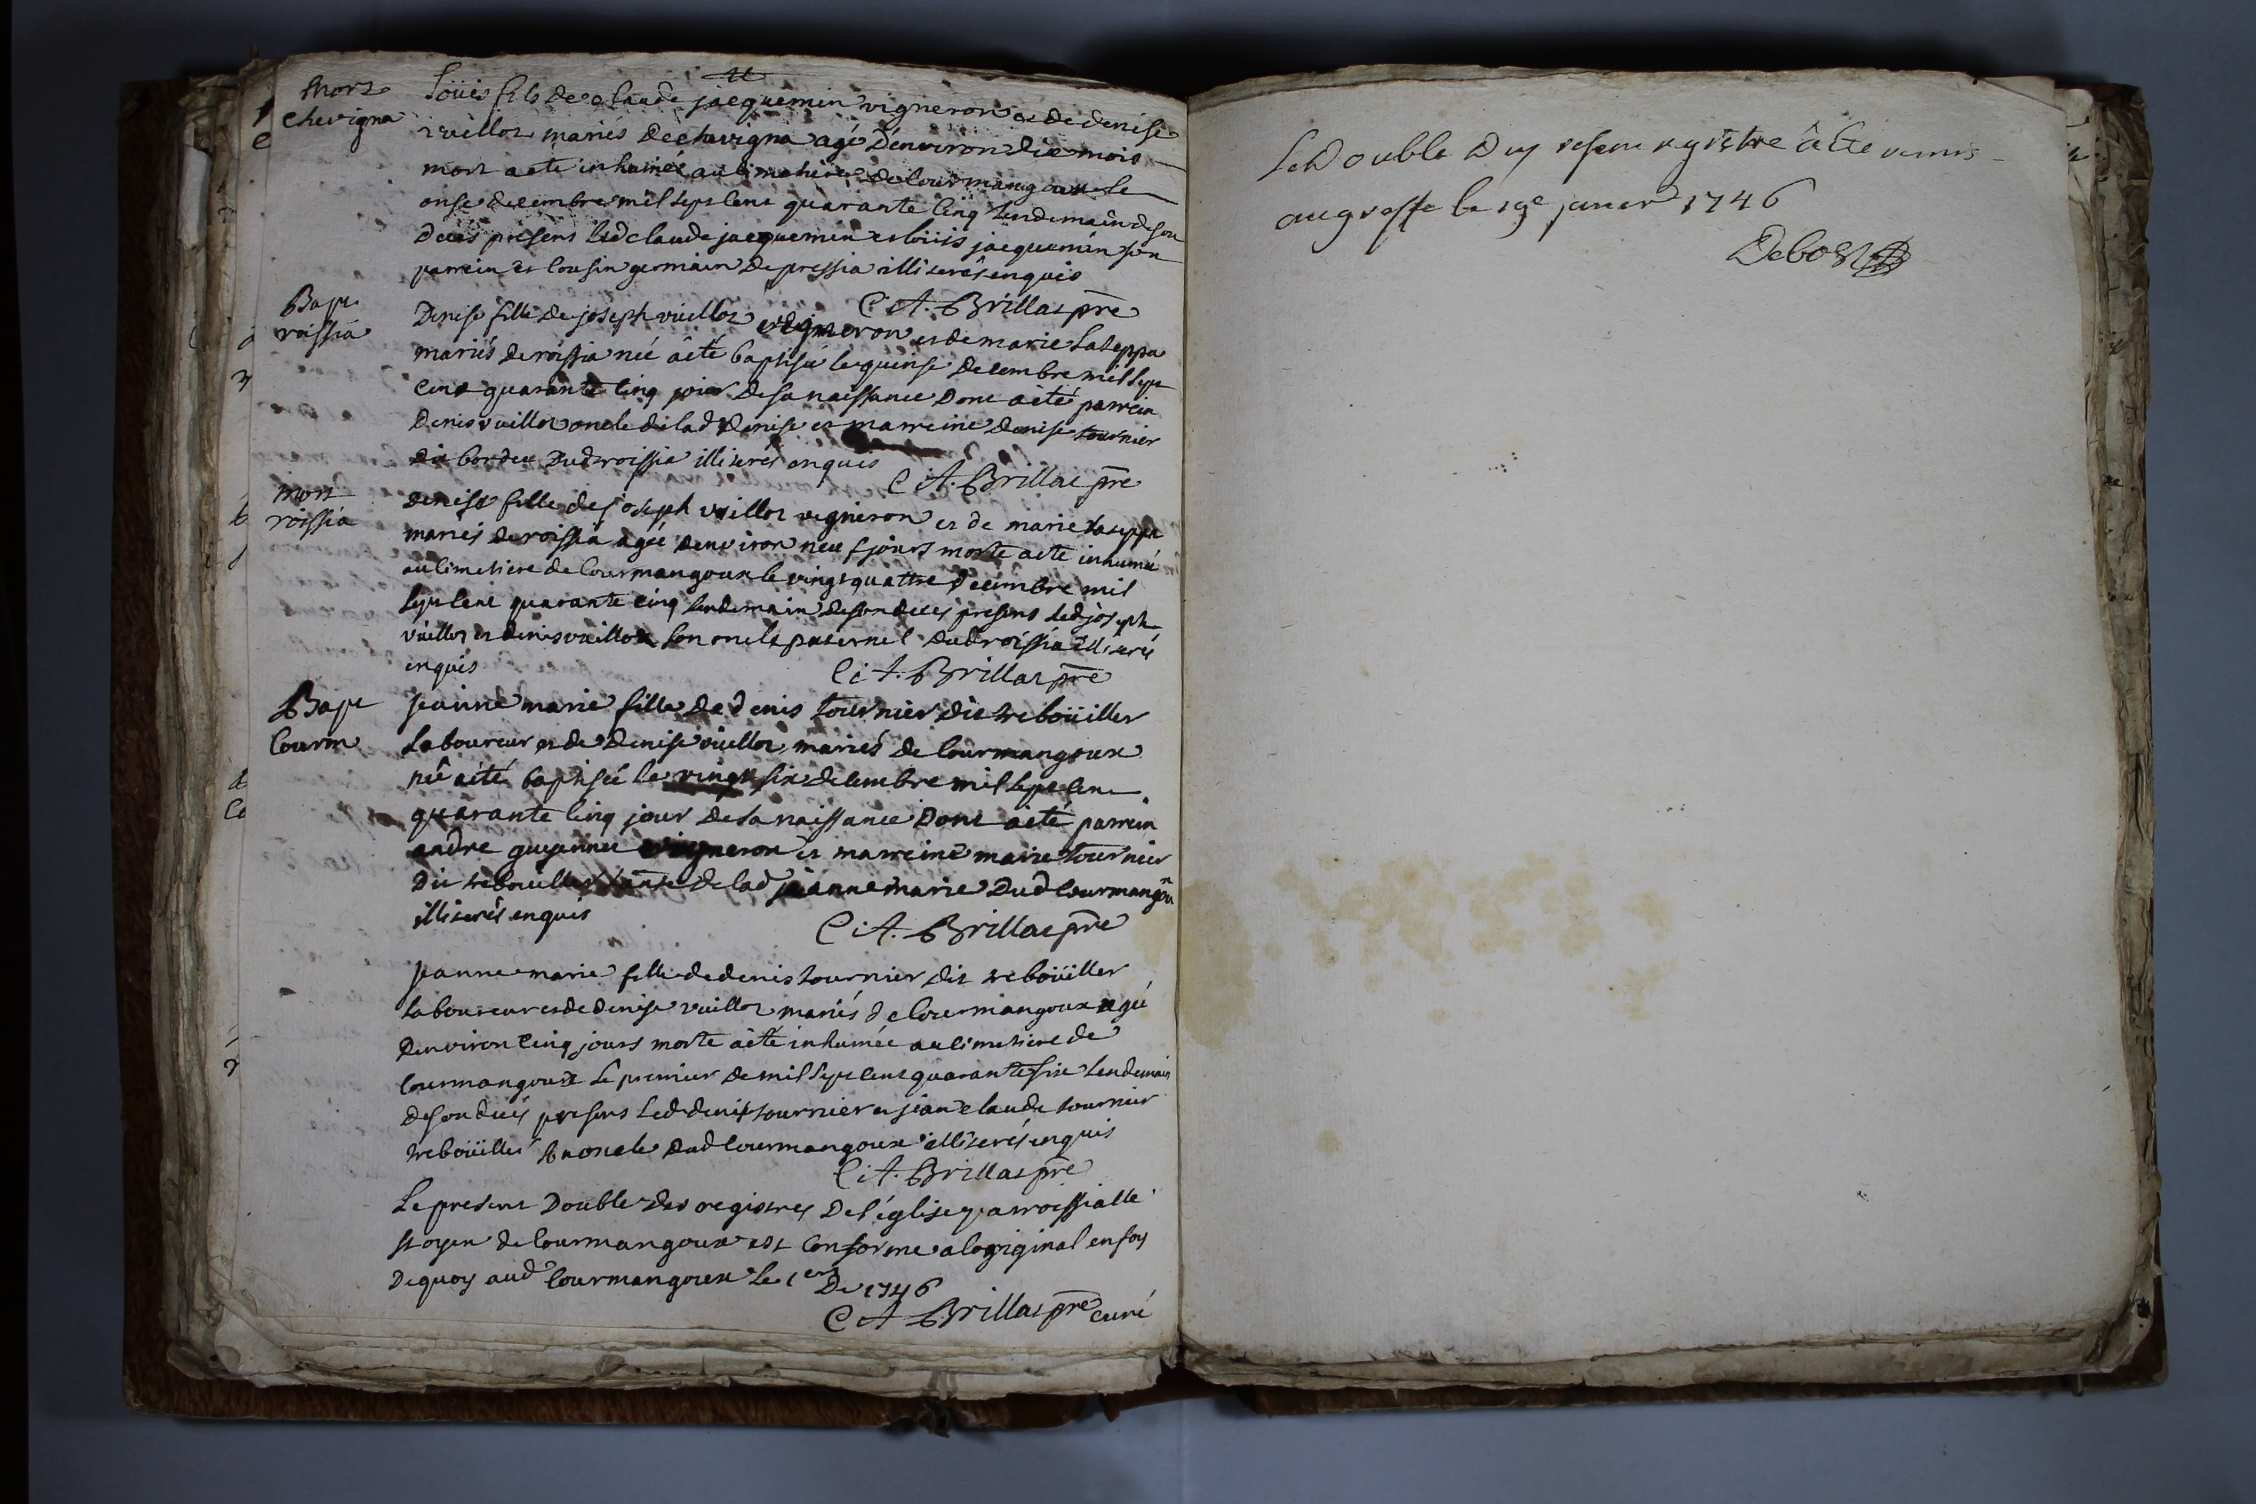 mort
chevigna
Loüis fils de claude jacquemin vigneron et de denise
vuillot mariés de chevigna agé d'environ dix mois
mort a ete inhumé au cimetiere de courmangoux le
onse decembre mil sept cent quarante cinq lendemain de son
deces presens led claude jacquemin et loüis jacquemin son
parrein et cousin germain de pressia illiterés enquis
C. A. Brillat pre
Bapt
roissia
Denise fille de joseph vuillot vigneron et de marie lateppa
mariés de roissia née a êté baptisée le quinse decembre mil sept
cent quarante cinq jour de sa naissance dont a eté parrein
Denis vuillot oncle de lad denise et marreine denise tournier
du bordeu dud roissia illiterés enquis
C. A. Brillat pre
mort
roissia
denise fille de joseph vuillot vigneron et de marie lateppa
mariés de roissia agée denviron neuf jours morte a ete inhumée
au cimetiere de courmangoux le vingt quattre decembre mil
sept cent quarante cinq lendemain de son deces presens led joseph
vüillot et denis vuillot son oncle paternel dud roissia illiterés
enquis
C. A. Brillat pre
Bapt
courm
jeanne marie fille de denis tournier dit treboüillet
laboureur et de denise vüillot mariés de courmangoux
née a eté baptisée le vingt six decembre mil sept cent
quarante cinq jour de sa naissance dont a eté parrein
andre guyennet vigneron et marreine marie tournier
dit treboüillet tante de lad jeanne marie dud courmangou
illiterés enquis
C. A. Brillat pre
jeanne marie fille de denis tournier dit treboüillet
laboureur et de denise vuillot mariés de courmangoux agée
denviron cinq jours morte a êté inhumée au cimetiere de
courmangoux le premier de mil sept cent quarante six lendemain
de son deces presens led denis tournier et jean claude tournier
treboüillet oncle dud courmangoux illiterés enquis
C. A. Brillat pre
Le present double des registres de l'église parroissialle
st oyen de courmangoux est conforme a logriginal en foy
dequoy aud courmangoux le 1er de 1746
C A Brillat pre curé
Le double du present registre a été remis
au greffe le 19e janvier 1746
Debost